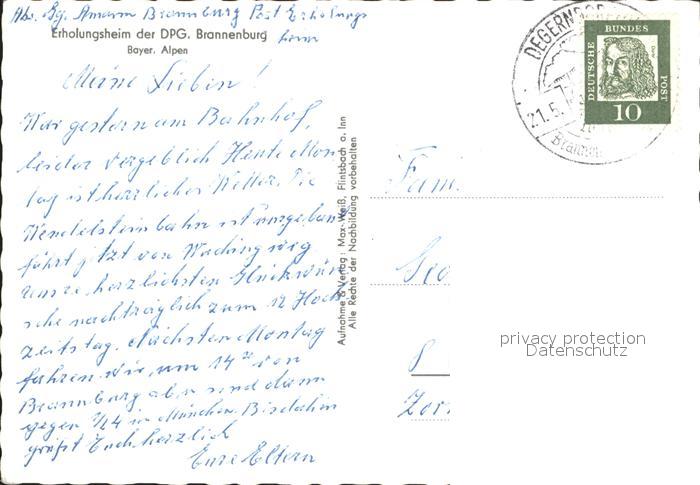 Abs. Gg. Amann Brannenburg Post Erholungs
heim
Erholungsheim der DPG. Brannenburg
Bayer. Alpen
Meine Lieben!
War gestern am Bahnhof,
leider vergeblich Heute Mon-
tag ist herrliches Wetter. Die
Wendelsteinbahn ist umgebaut
fährt jetzt von Waching weg
Unsre herzlichsten Glückwün
sche nachträglich zum 12 Hoch
zeitstag. Nächsten Montag
fahren wir um 14 von
Brannenburg ab u sind dann
gegen 1/24 in München. Bis dahin
grüßt Euch herzlich
Eure Eltern
Aufnahme & Verlag: Max Weiß, Flintsbach a. Inn
Alle Rechte der Nachbildung vorbehalten
DEGERNDORF
21.5.
DEUTSCHE BUNDES POST
10
Fami
Geo
Zor
privacy protection
Datenschutz